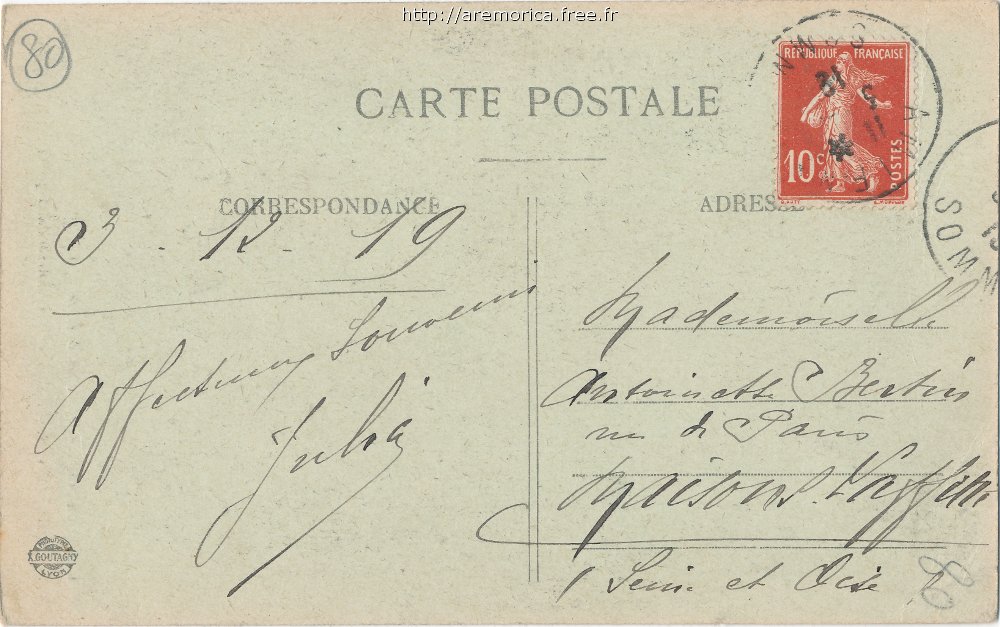 http://aremorica.free.fr
80
CARTE POSTALE
RÉPUBLIQUE FRANÇAISE
10c
POSTES
CORRESPONDANCE
ADRESSE
SOMM
3 - 12 - 19
Affectueux Souvenirs
Julia
Mademoiselle
Antoinette Bertin
rue de Paris
Maisons Laffitte
Seine et Oise
A. GOUTAGNY
LYON
80